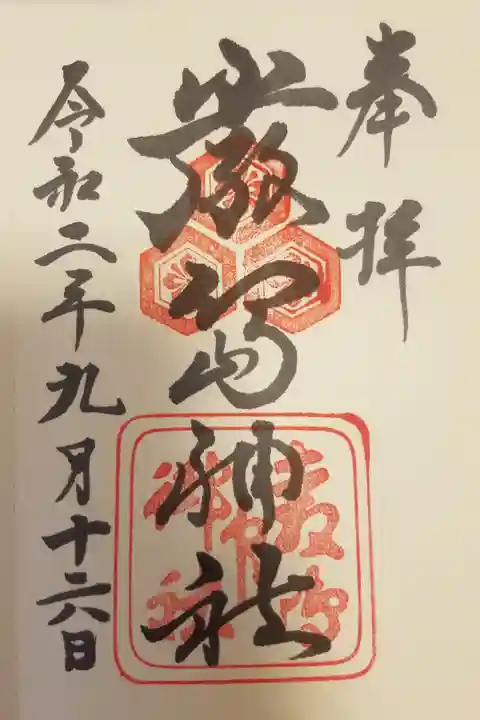 奉拝
嚴嶋神社
令和二年九月十六日